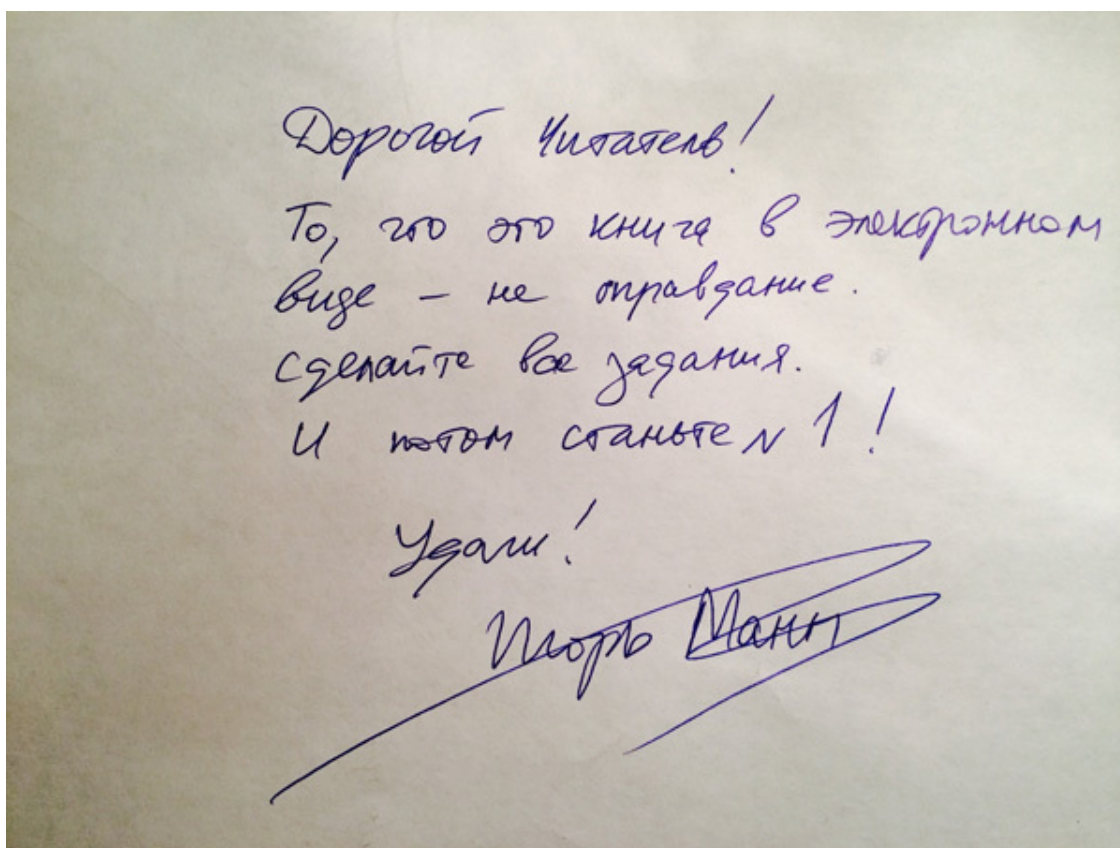 Дорогой Читатель!
То, что это книга в электронном
виде – не оправдание.
Сделайте все задания.
И потом станьте № 1!
Удачи!
Игорь Манн